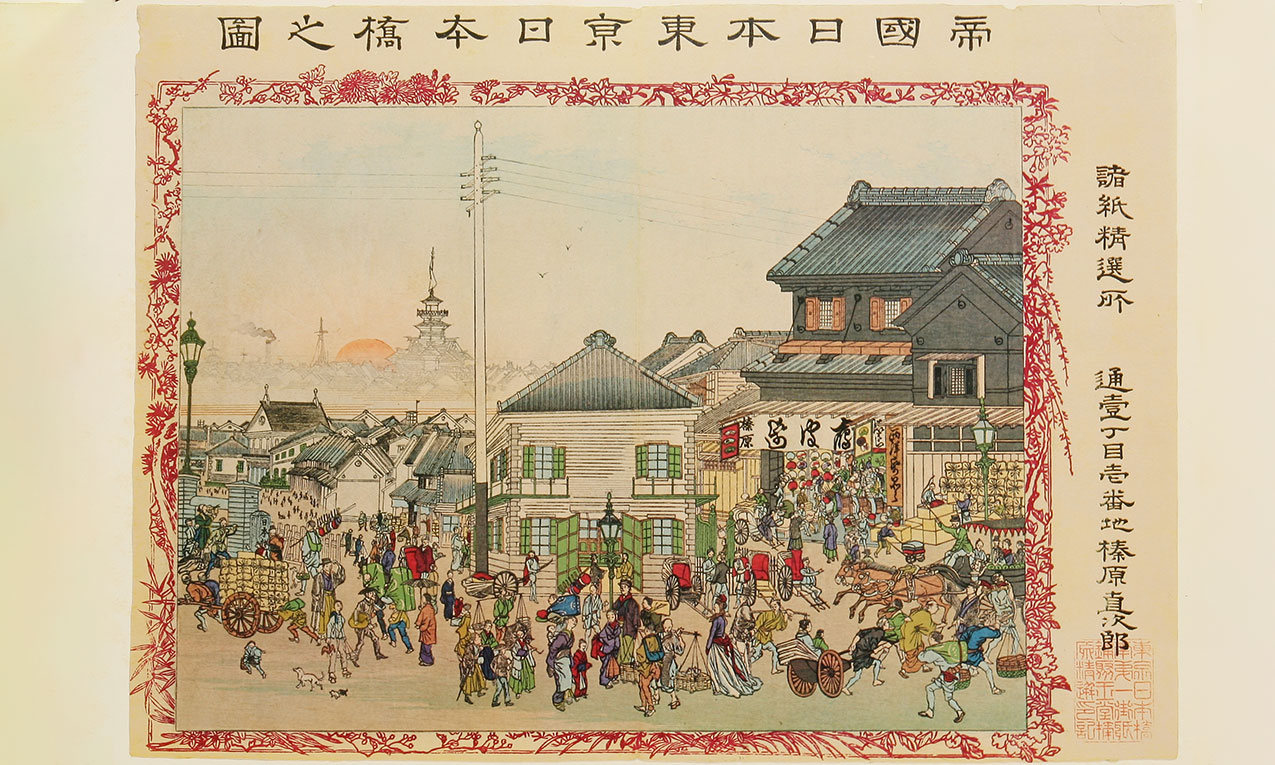 帝國日本東亰日夲橋之圖
諸紙精選所　通壹丁目壱番地榛原直次郎
榛原
東京日本橋